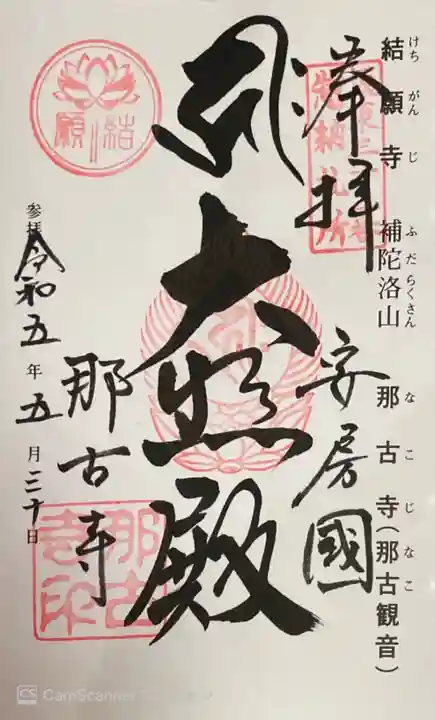 結願寺 補陀洛山 那古寺(那古観音)
けちがんじ ふだらくさん なこじ なこ
奉拝
安房國
大悲殿
那古寺
参拝 令和五年五月三十日
結願
那古寺印
CamScanner